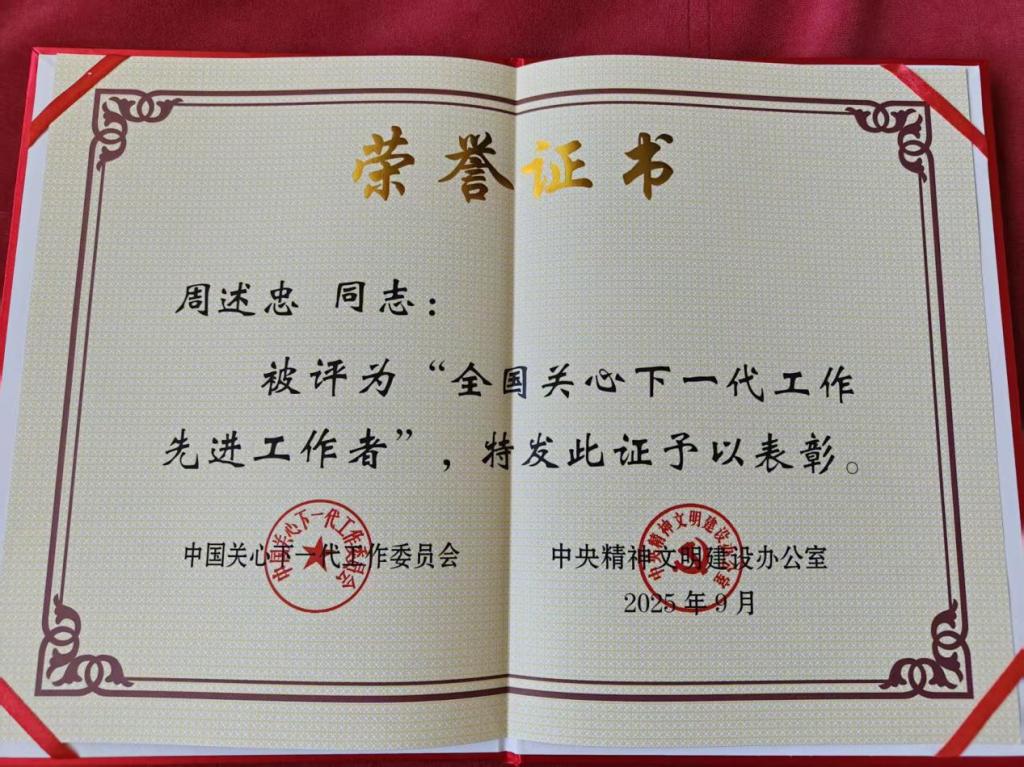 荣誉证书
周述忠 同志：
被评为“全国关心下一代工作
先进工作者”，特发此证予以表彰。
中国关心下一代工作委员会
中国关心下一代工作委员会
中央精神文明建设办公室
中央精神文明建设办公室
2025年9月